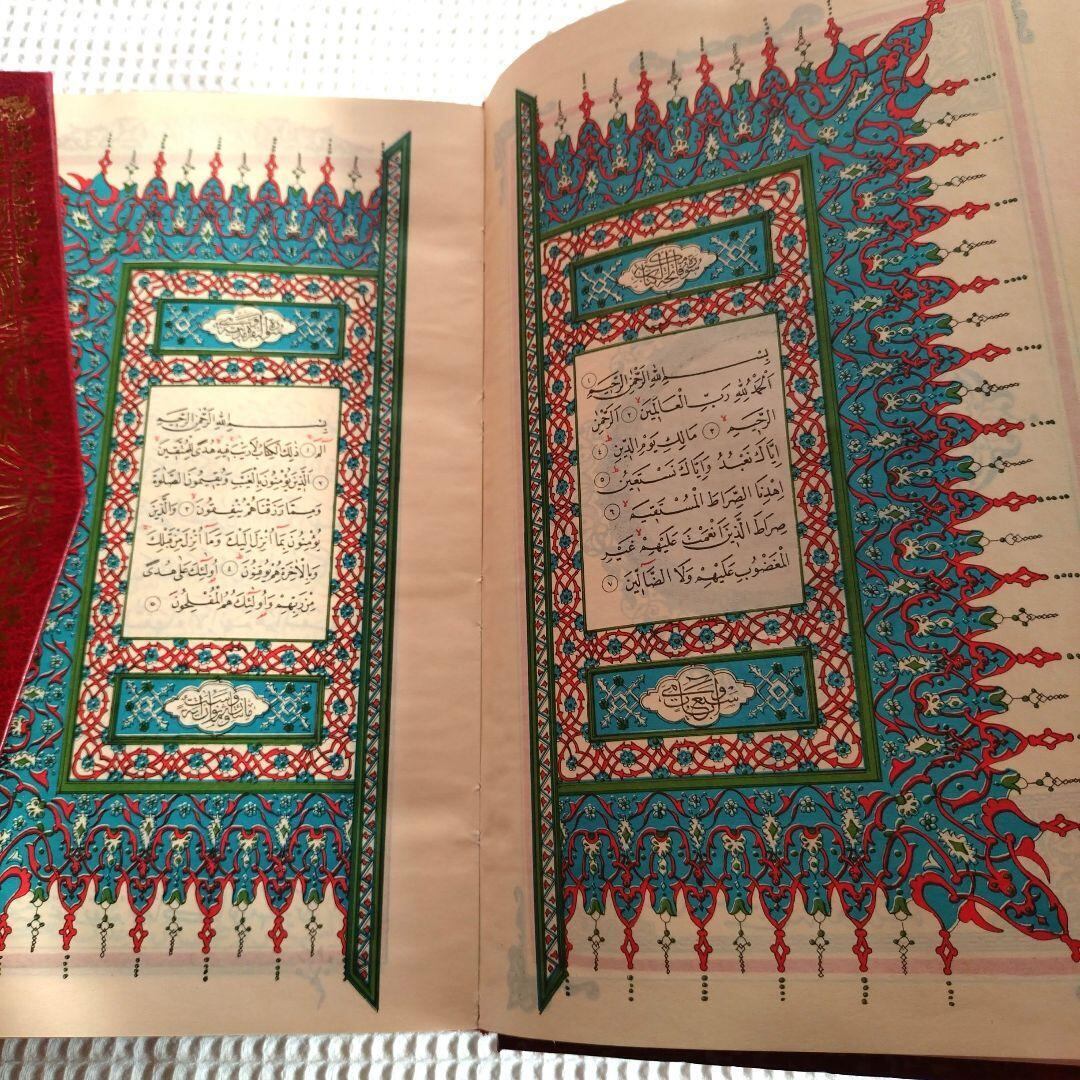 سورة فاتحة الكتاب
بسم الله الرحمن الرحيم ١
الحمد لله رب العالمين ٢ الرحمن
الرحيم ٣ مالك يوم الدين ٤
اياك نعبد واياك نستعين ٥
اهدنا الصراط المستقيم ٦
صراط الذين انعمت عليهم غير
المغضوب عليهم ولا الضالين ٧
وهي سبع آيات
بسم الله الرحمن الرحيم
الم ١ ذلك الكتاب لا ريب فيه هدى للمتقين
٢ الذين يؤمنون بالغيب ويقيمون الصلوة
ومما رزقناهم ينفقون ٣ والذين
يؤمنون بما انزل اليك وما انزل من قبلك
وبالاخرة هم يوقنون ٤ اولئك على هدى
من ربهم واولئك هم المفلحون ٥